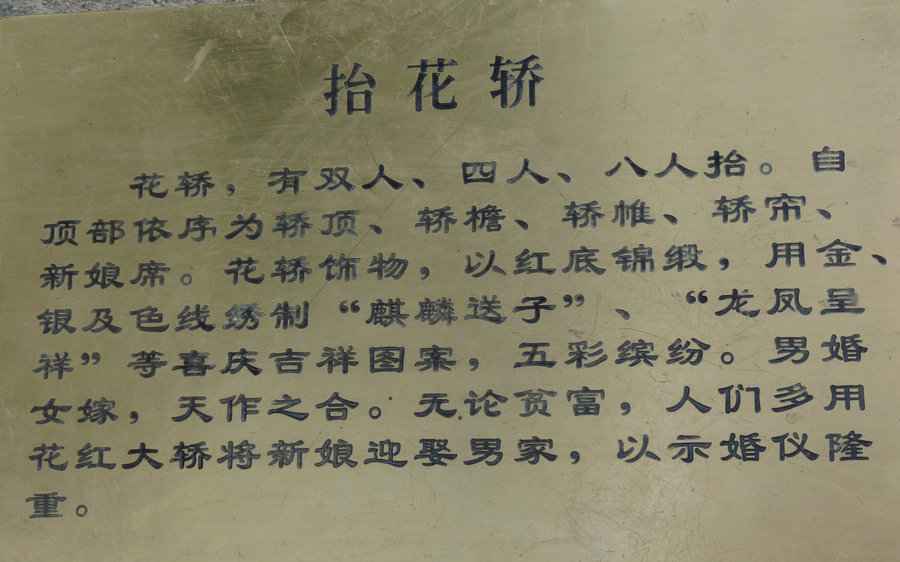 抬花轿
花轿，有双人、四人、八人抬。自
顶部依序为轿顶、轿檐、轿帷、轿帘、
新娘席。花轿饰物，以红底锦缎，用金、
银及色线绣制“麒麟送子”、“龙凤呈
祥”等喜庆吉祥图案，五彩缤纷。男婚
女嫁，天作之合。无论贫富，人们多用
花红大轿将新娘迎娶男家，以示婚仪隆
重。